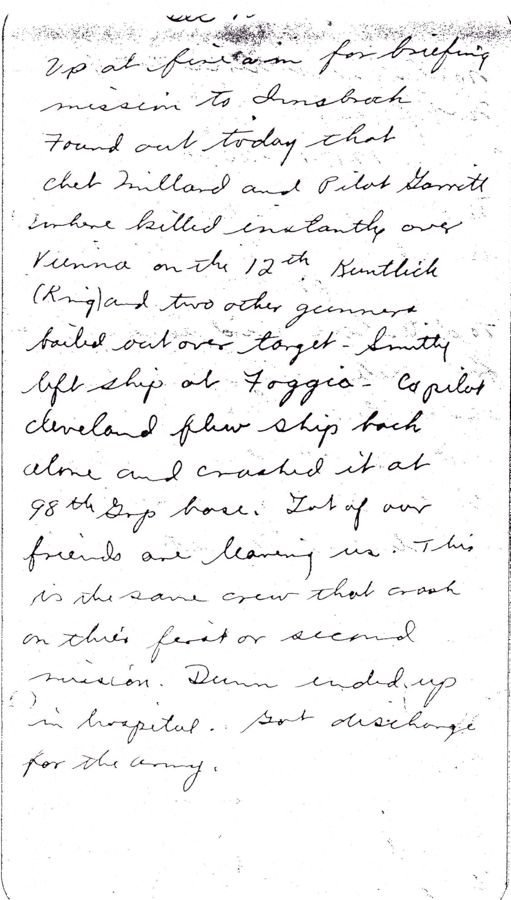 Up at five a m for briefing
mission to Innsbrock
Found out today that
Chet Millard and Pilot Garritt
where killed instantly over
Vienna on the 12th. Kuntlick
(King) and two other gunners
bailed out over target - Smitty
left ship at Foggia - Copilot
Cleveland flew ship back
alone and crashed it at
98th Grp base. Lot of our
friends are leaving us. This
is the same crew that crash
on thier first or second
mission. Dunn ended up
in hospital. Got discharge
for the army.